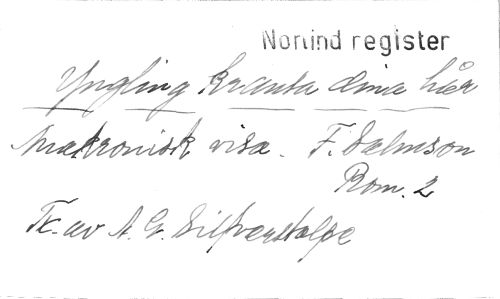 Norlind register
Yngling kransa dina hår
Makronisk visa. F. Dalmson
Rom. 2
Tr. av A. G. Silfverstolpe